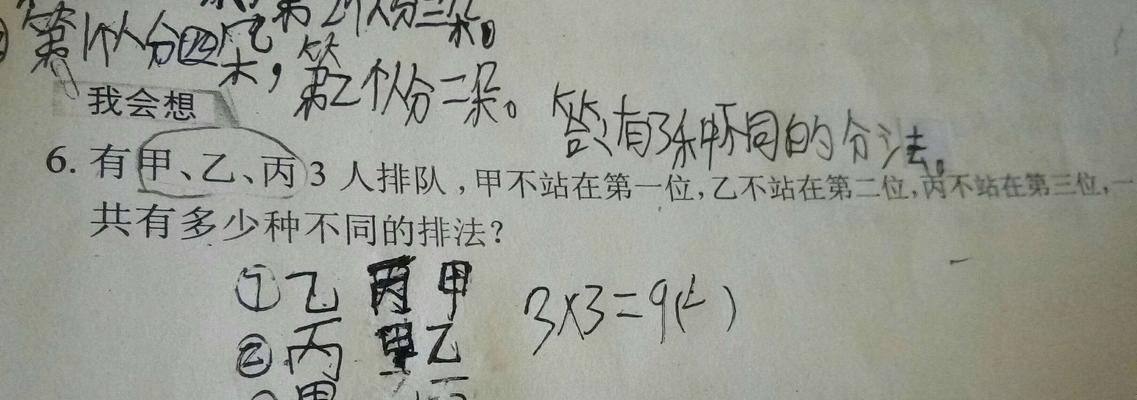 第2个人分三朵。
第1个人分四朵,第2个人分二朵。
我会想
答:有3种不同的分法。
6. 有甲、乙、丙3人排队,甲不站在第一位,乙不站在第二位,丙不站在第三位,一
共有多少种不同的排法?
①乙 丙 甲
3×3=9(
②丙 甲乙